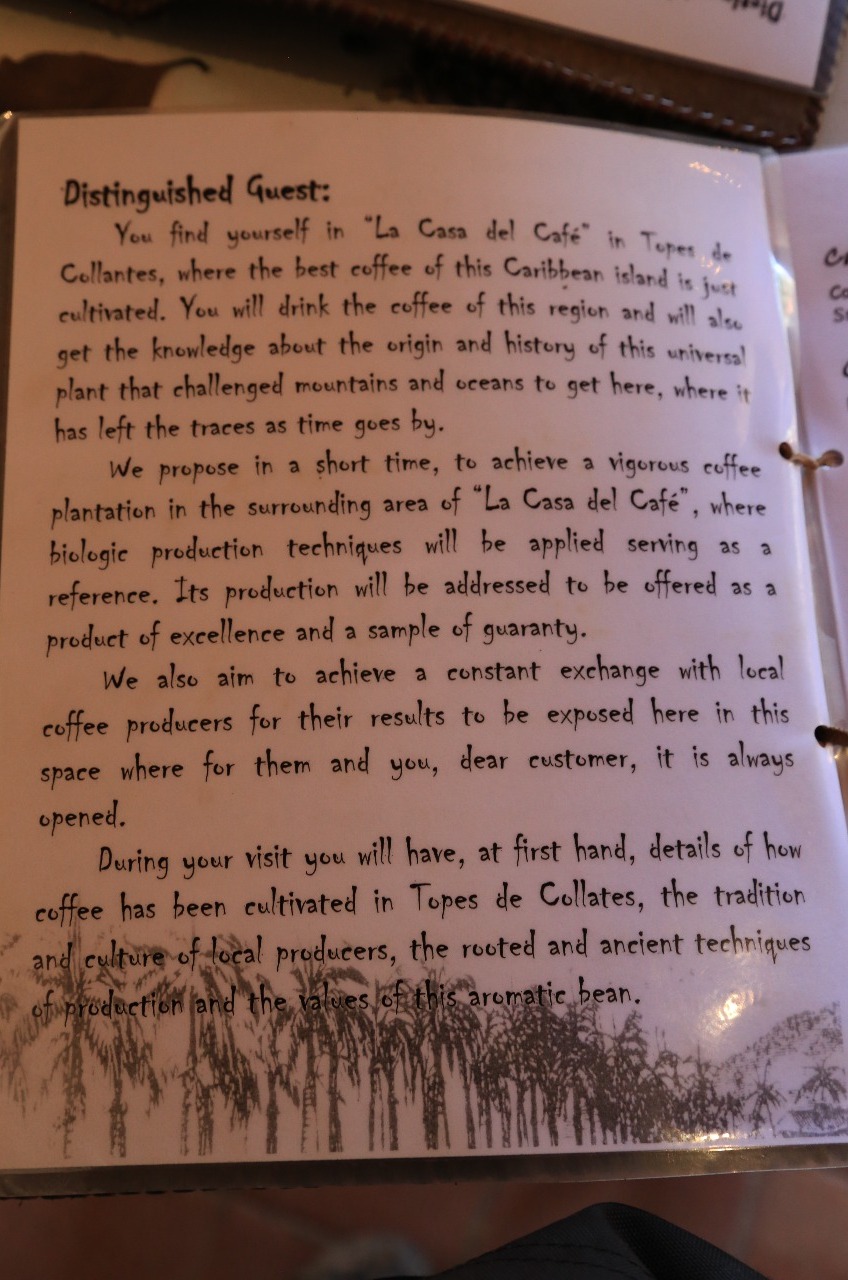 Distinguished Guest:
You find yourself in "La Casa del Café" in Topes de
Collantes, where the best coffee of this Caribbean island is just
cultivated. You will drink the coffee of this region and will also
get the knowledge about the origin and history of this universal
plant that challenged mountains and oceans to get here, where it
has left the traces as time goes by.
We propose in a short time, to achieve a vigorous coffee
plantation in the surrounding area of "La Casa del Café", where
biologic production techniques will be applied serving as a
reference. Its production will be addressed to be offered as a
product of excellence and a sample of guaranty.
We also aim to achieve a constant exchange with local
coffee producers for their results to be exposed here in this
space where for them and you, dear customer, it is always
opened.
During your visit you will have, at first hand, details of how
coffee has been cultivated in Topes de Collates, the tradition
and culture of local producers, the rooted and ancient techniques
of production and the values of this aromatic bean.